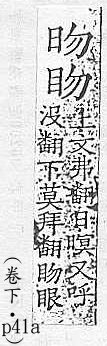 昒䀛
上文弗翻旦暝又呼
沒翻下莫拜翻䀛眼
(卷下·
p41a